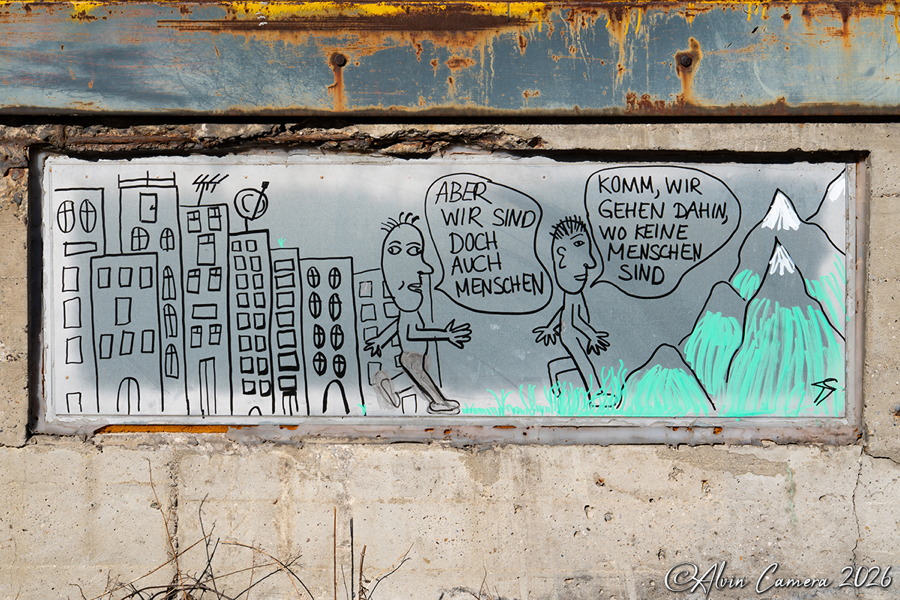 ABER
WIR SIND
DOCH
AUCH
MENSCHEN
KOMM, WIR
GEHEN DAHIN,
WO KEINE
MENSCHEN
SIND
©Alvin Camera 2026